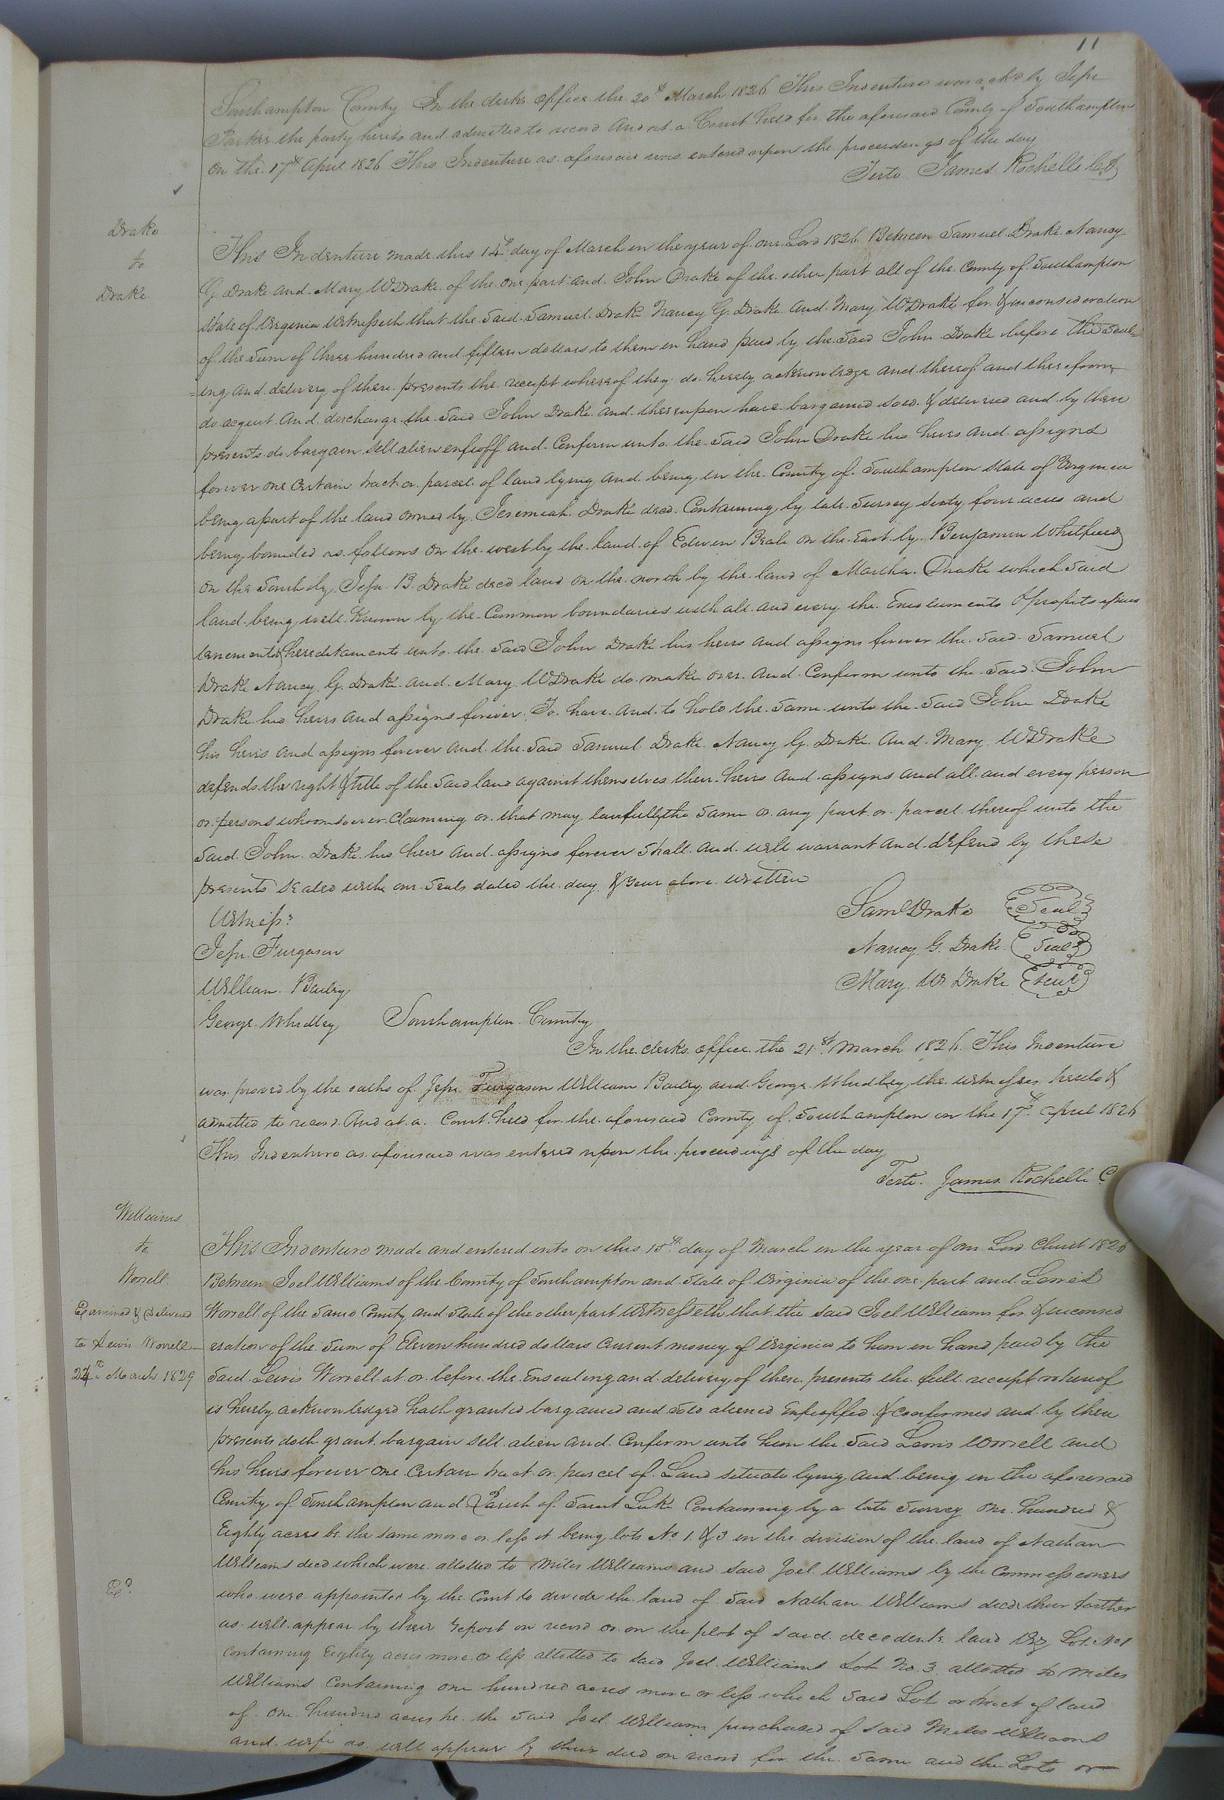 11
Southampton County In the clerks office the 20th March 1826 This Indenture was ack'd by Jesse
Parker the party hereto and admitted to record And at a Court held for the aforesaid County of Southampton
on the 17th April 1826 This Indenture as aforesaid was entered upon the proceedings of the day
Teste James Rochelle C.S.
Drake
to
Drake
This Indenture made this 14th day of March in the year of our Lord 1826 Between Samuel Drake Nancy
G. Drake and Mary W Drake of the one part and John Drake of the other part all of the County of Southampton
State of Virginia Witnesseth that the Said Samuel Drake Nancy G. Drake and Mary W Drake for & in consideration
of the Sum of three hundred and fifteen dollars to them in hand paid by the Said John Drake before the Seal-
=ing and delivery of these presents the receipt whereof they do hereby acknowledge and thereof and therefrom
do acquit and discharge the Said John Drake and thereupon have bargained sold & delivered and by these
presents do bargain sell alien enfeoff and Confirm unto the Said John Drake his heirs and assigns
forever one Certain tract or parcel of land lying and being in the County of Southampton State of Virginia
being a part of the land owned by Jeremiah Drake decd. Containing by late Survey Sixty four acres and
being bounded as follows on the west by the land of Edwin Beale on the East by Benjamin Whitfield
on the South by Jesse B. Drake decd land on the north by the land of Martha Drake which Said
land being well Known by the Common boundaries with all and every the Emoluments & profits
tenements & hereditaments unto the Said John Drake his heirs and assigns forever the Said Samuel
Drake Nancy G. Drake and Mary W Drake do make over and Confirm unto the Said John
Drake his heirs and assigns forever To have and to hold the Same unto the Said John Drake
his heirs and assigns forever and the Said Samuel Drake Nancy G. Drake and Mary W Drake
defends the right & title of the Said land against themselves their heirs and assigns and all and every person
or persons whomsoever Claiming or that may lawfully the Same or any part or parcel thereof unto the
Said John Drake his heirs and assigns forever Shall and will warrant and defend by these
presents Sealed with our Seals dated the day & year above written
Witness:
Saml Drake Seal
Jesse Furgason
Nancy G. Drake Seal
William Bailey
Mary W. Drake Seal
George Whedbey Southampton County
In the clerks office the 21st March 1826 This Indenture
was proved by the oaths of Jesse Furgason William Bailey and George Whedbey the witnesses hereto &
admitted to record And at a Court held for the aforesaid County of Southampton on the 17th April 1826
This Indenture as aforesaid was entered upon the proceedings of the day
Teste James Rochelle C
Williams
to
Worrell
Examined & Delivered
to Lewis Worrell
24th March 1829
This Indenture made and entered into on this 18th day of March in the year of our Lord Christ 1826
Between Joel Williams of the County of Southampton and State of Virginia of the one part and Lewis
Worrell of the Same County and State of the other part Witnesseth that the said Joel Williams for & in consid
eration of the Sum of Eleven hundred dollars Current money of Virginia to him in hand paid by the
Said Lewis Worrell at or before the Ensealing and delivery of these presents the full receipt whereof
is hereby acknowledged hath granted bargained and sold aliened Enfeoffed & Confirmed and by these
presents doth grant bargain sell alien and Confirm unto him the Said Lewis Worrell and
his heirs forever one Certain tract or parcel of Land situate lying and being in the aforesaid
County of Southampton and Parish of Saint Luke Containing by a late Survey One hundred &
Eighty acres be the same more or less it being lots No 1 & 3 in the division of the land of Nathan
Williams decd which were allotted to Miles Williams and said Joel Williams by the Commissioners
who were appointed by the Court to divide the land of Said Nathan Williams decd their Father
as will appear by their report on record or on the plot of said decedents land Viz Lot No 1
Containing Eighty acres more or less allotted to said Joel Williams Lot No. 3 allotted to Miles
Williams Containing one hundred acres more or less which Said Lot or tract of land
of one hundred acres he the Said Joel Williams purchased of Said Miles Williams
and wife as will appear by their deed on record for the Same and the Lots or